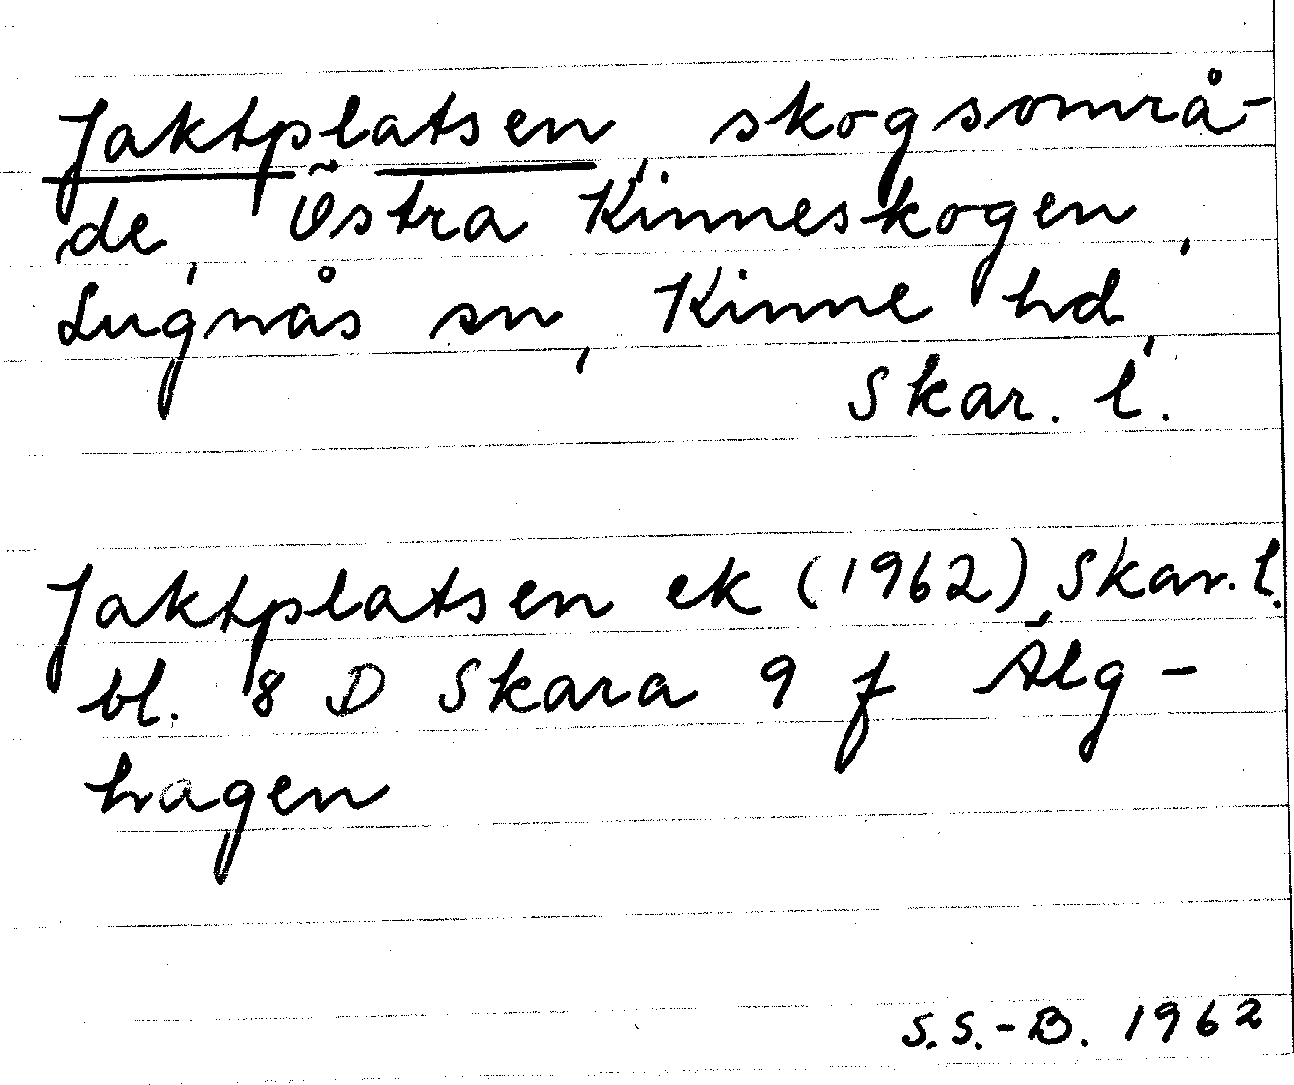 Jaktplatsen, skogsområ-
de, Östra Kinneskogen,
Lugnås sn, Kinne hd,
Skar. l.
Jaktplatsen ek (1962), Skar. l.
bl. 8 D Skara 9 f Älg-
hagen
S.S.-B. 1962